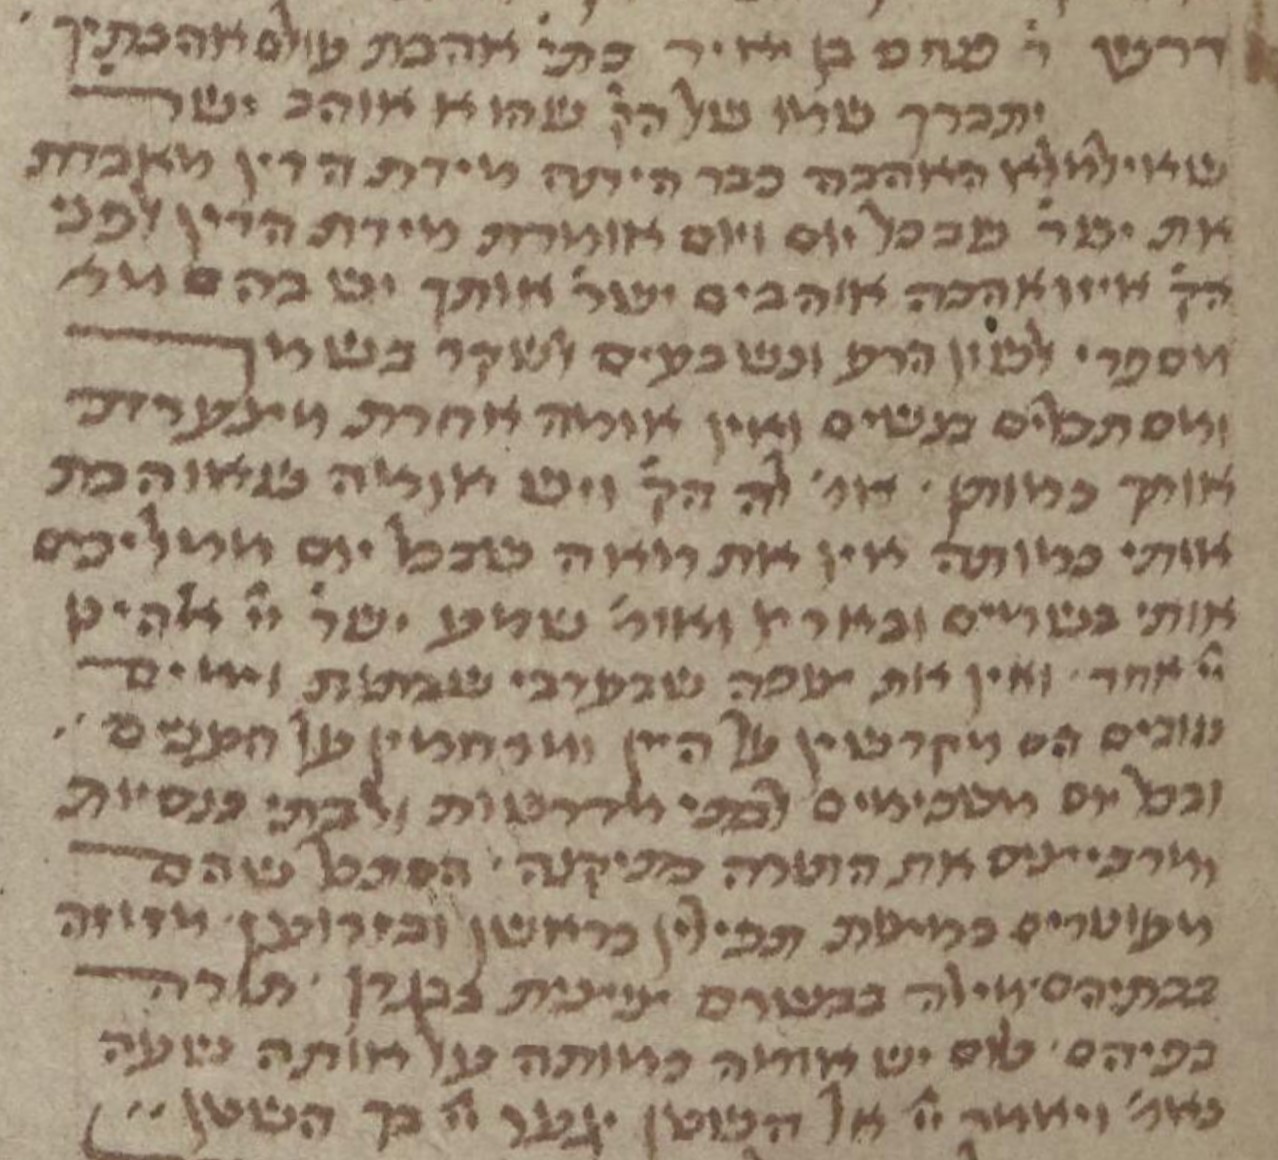 דרש ר' מנחם בן יאיר כתי' אהבת עולם אהבתיך
יתברך שמו של הק' שהוא אוהב ישר'
שאילמלא האהבה כבר היתה מידת הדין מאבדת
את ישר' שבכל יום ויום אומרת מידת הדין לפני
הק' איזו אהבה אוהבים ישר' אותך יש בהם
מספרי לשון הרע ונשבעים לשקר בשמך
ומסתכלים בנשים ואין אומה אחרת
אותך כמותן. אמ' לה הק' ויש אומה שאוהבת
אותי כמותה אין את רואה שבכל יום ממליכים
אותי בשמים ובארץ ואומ' שמע ישר' יי' אלהינו
יי' אחד. ואין את שבערבי שבתות וימים
טובים הם מקדשין על היין ומרחמין על העניים
ובכל יום משכימים לבתי מדרשות ולבתי כנסיות
את התורה הסתכל שהם
מעוטרים במצות תפילין בראשן ובזרוען. מזוזה
בבתיהם. מילה בבשרם ציצית בבגדן. תורה
בפיהם. כלום יש אומה כמותה על אותה שעה
נאמ' ויאמר יי' אל השטן יגער יי' בך השטן